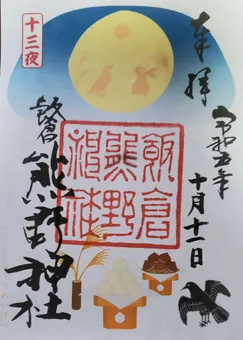 奉拝
令和五年
十月十一日
十三夜
飯倉
熊野神社
飯倉
熊野
神社